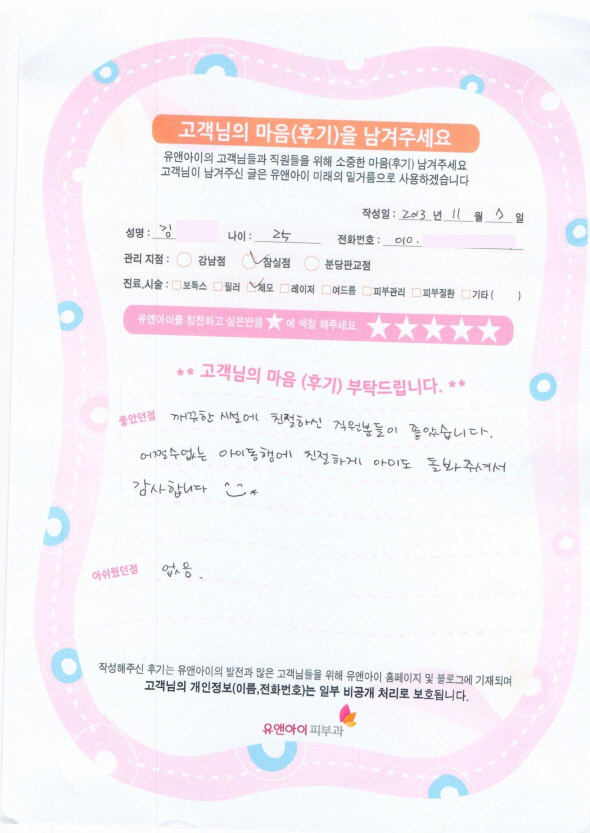 고객님의 마음(후기)을 남겨주세요
유앤아이의 고객님들과 직원들을 위해 소중한 마음(후기) 남겨주세요
고객님이 남겨주신 글은 유앤아이 미래의 밑거름으로 사용하겠습니다
작성일 : 2013 년 11 월 일
성명 : 김 나이 : 25 전화번호 : 010.
관리 지점 : 강남점 잠실점 분당판교점
진료,시술 : 보톡스 필러 제모 레이저 여드름 피부관리 피부질환 기타 ( )
유앤아이를 칭찬하고 싶은만큼 ★ 에 색칠 해주세요. ★★★★★
** 고객님의 마음 (후기) 부탁드립니다. **
좋았던점 깨끗한 시설에 친절하신 직원분들이 좋았습니다.
어쩔수없는 아이동행에 친절하게 아이도 돌봐주셔서
감사합니다 ^^
아쉬웠던점 없음.
작성해주신 후기는 유앤아이의 발전과 많은 고객님들을 위해 유앤아이 홈페이지 및 블로그에 기재되며
고객님의 개인정보(이름,전화번호)는 일부 비공개 처리로 보호됩니다.
유앤아이 피부과